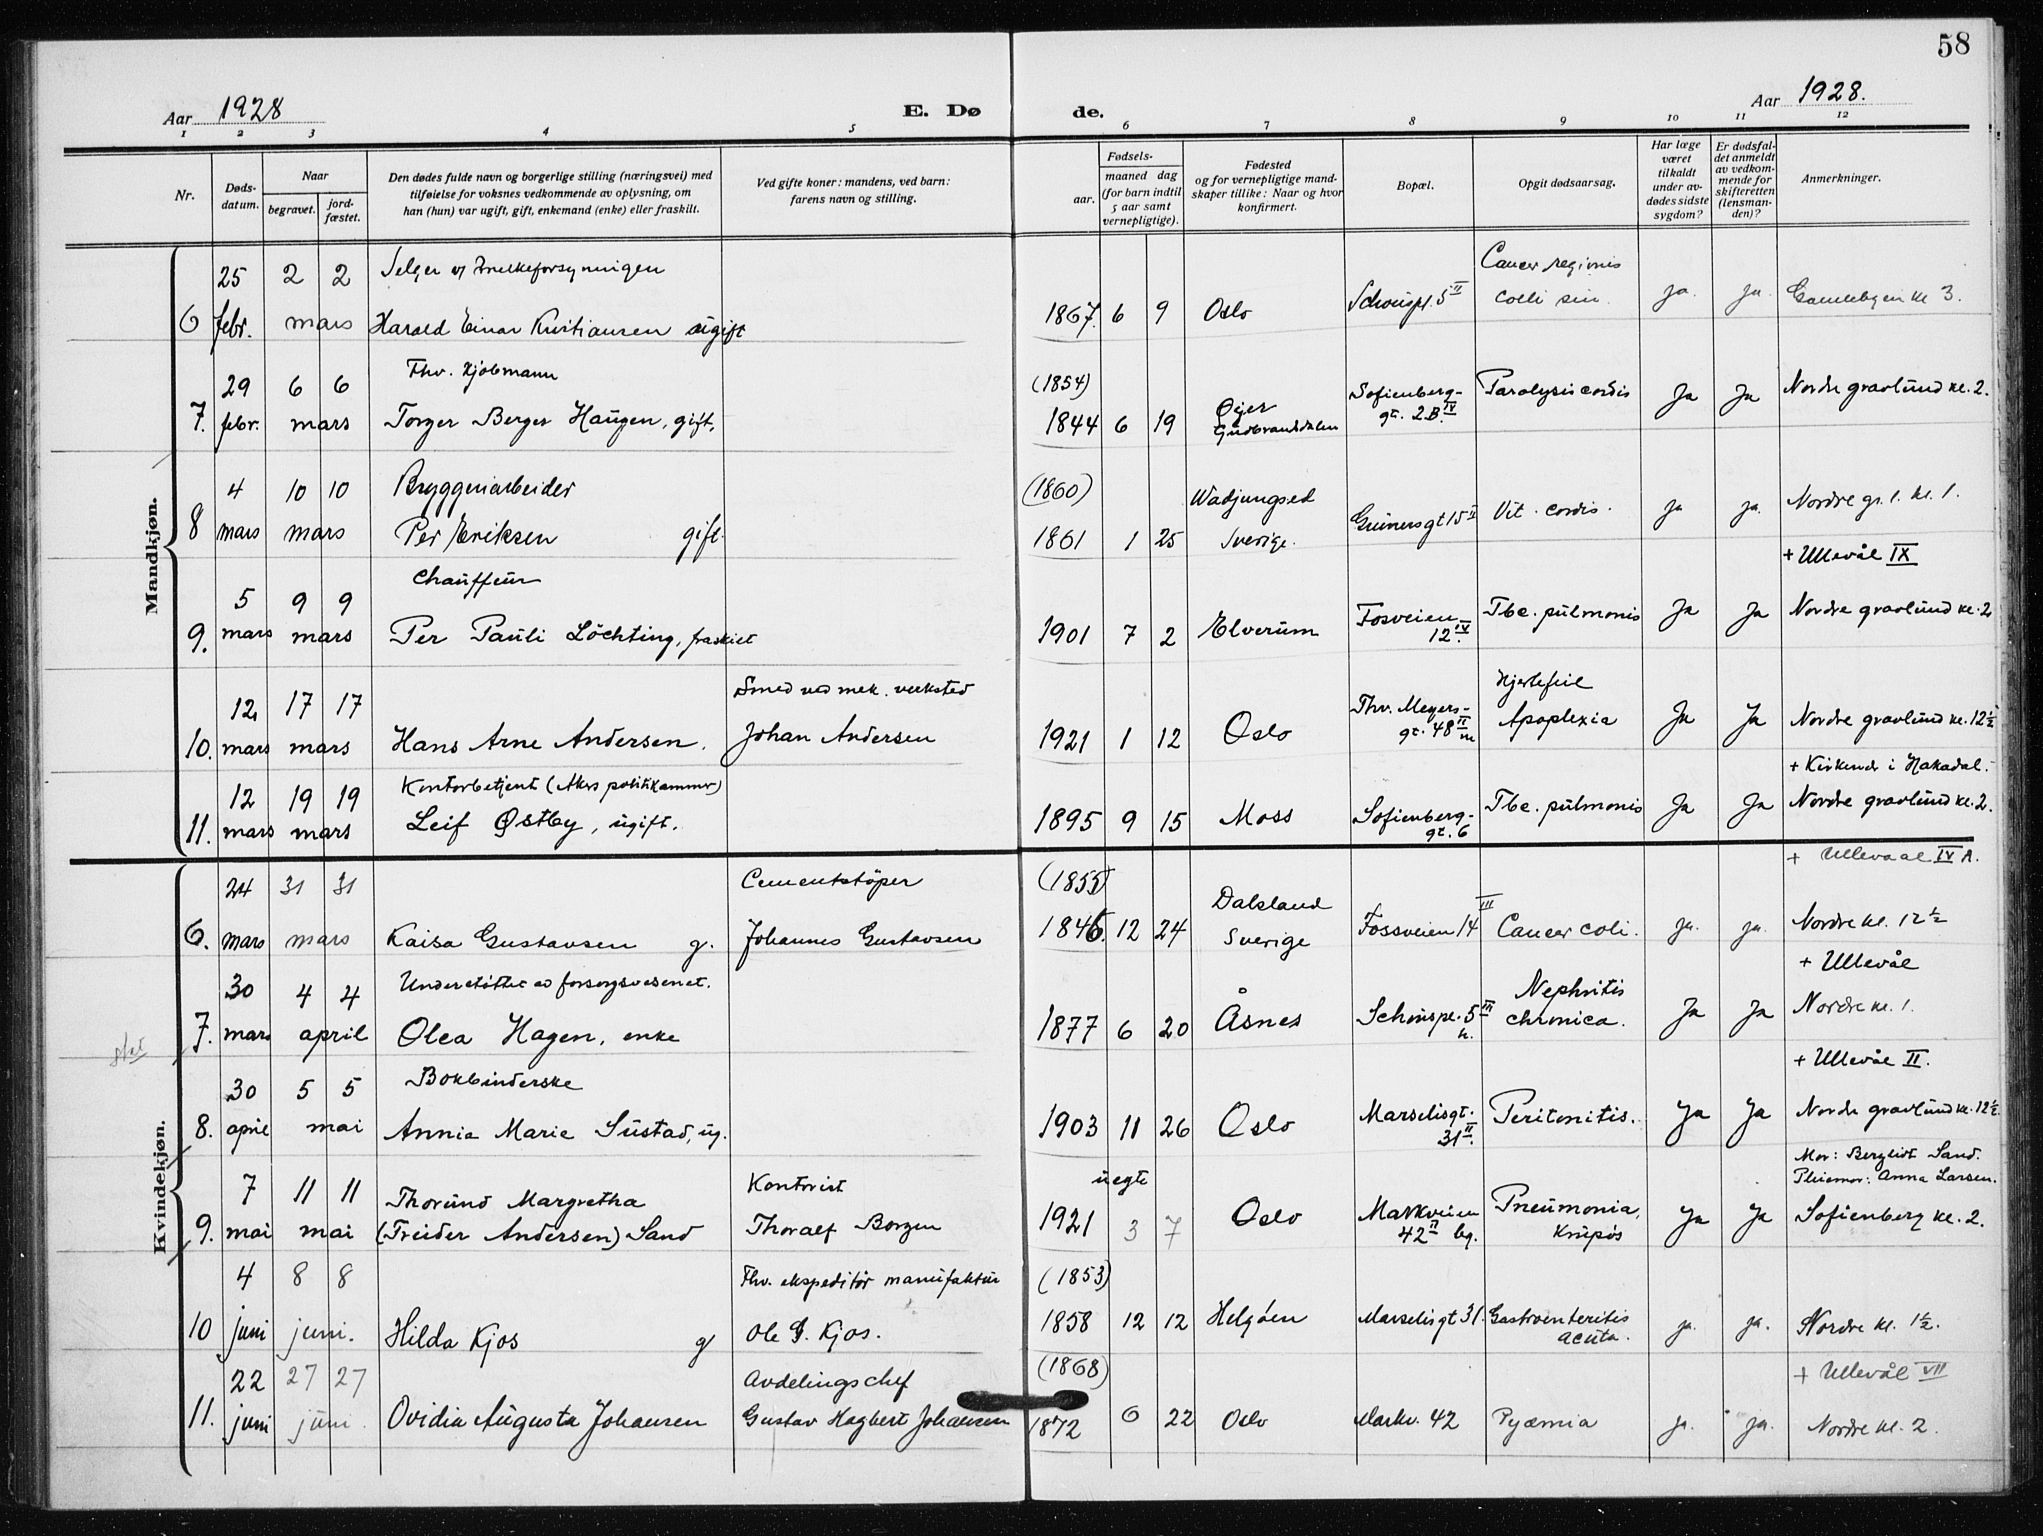 58
Aar 1928
E. Dø
de.
Aar 1928.
1 2 3 4 5 6 7 8 9 10 11 12
Nr.
Døds-
datum.
Naar
begravet.
jord-
fæstet.
Den dødes fulde navn og borgerlige stilling (næringsvei) med
tilføielse for voksnes vedkommende av oplysning, om
han (hun) var ugift, gift, enkemand (enke) eller fraskilt.
Ved gifte koner: mandens, ved barn:
farens navn og stilling.
Fødsels-
aar.
maaned dag
(for barn indtil
5 aar samt
vernepligtige).
Fødested
og for vernepligtige mand-
skaper tillike: Naar og hvor
konfirmert.
Bopæl.
Opgit dødsaarsag.
Har læge
været
tilkaldt
under av-
dødes sidste
sygdom?
Er dødsfal-
det anmeldt
av vedkom-
mende for
skifteretten
(lensman-
den)?
Anmerkninger.
Mandkjøn.
25 2 2 Selger v/ Cancer regionis
6 febr. mars Harald Einar Kristiansen ugift 1867. 6 9 Oslo Schouspl. 5 II colli sin. ja. ja. Gamlebyen kl 3.
29 6 6 Fhv. (1854) Sofienberg- Paralysis cordis Ja Ja Nordre gravlund kl. 2.
7. febr. mars Torger Berger Haugen, gift, 1844 6 19 Øyer Gudbrandsdalen gt. 2B. IV
4 10 10 Bryggeriarbeider (1860) Nordre gr. l. kl. 1.
8 mars mars Per Eriksen gift. 1861 1 25 Sverige. Grünersgt 15 II Vit. cordis. ja ja.
+ Ullevål IX
5 9 9 Chauffeur Fosveien Tbc. pulmonis Ja Ja Nordre gravlund kl. 2
9. mars mars Per Pauli Löchting, fraskilt 1901 7 2 Elverum 12 IV.
12 17 17 Smed ved mek. verksted Thv. Meyers- Hjertefeil
10. mars mars Hans Arne Andersen. Johan Andersen 1921 1 12 Oslo gt. 48 II Apoplexia Ja Ja Nordre gravlund kl. 12½
Kontorbetjent (Akers politikammer) + Kirkeud. i Hakadal.
12 19 19 Sofienberg- Tbc. pulmonis Ja Ja Nordre gravlund kl. 2.
11. mars mars Leif Østby, ugift. 1895 9 15 Moss gt. 6
Kvindekjøn.
+ Ullevaal IV A.
24 31 31 Cementstöper (1855) Dalsland III
6. mars mars Kaisa Gustavsen g. Johannes Gustavsen 1846. 12 24 Sverige Fossveien 14 Cancer coli. ja. ja. Nordre kl. 12½
+ Ullevål
30 4 4 Understøttet av forsorgsvesenet. Nephritis Nordre kl. 1.
7. mars april Olea Hagen, enke 1877 6 20 Åsnes Schouspl. 5 III chronica. Ja Ja
+ Ullevål II.
30 5 5 Bokbinderske Marselisgt. Nordre gravlund kl. 12½
8. april mai Annie Marie Sustad, ug. 1903 11 26 Oslo 31 II. Peritonitis. Ja Ja
Mor: Bergliot Sand.
Pleiemor: Anna Larsen.
7 11 11 Thorund Margretha Kontorist uegte Markveien Pneumonia,
9. mai mai (Treider Andersen) Sand Thoralf Borgen 1921 3 7 Oslo 42 II bg. Ja Ja Sofienberg kl. 2.
4 8 8 Fhv. ekspeditør manufaktur (1853)
10 juni juni. Hilda Kjos g Ole G. Kjos. 1858 12 12 Helgöen Marselisgt 31. Gastroenteritis acuta. ja. ja. Nordre kl. 1½.
22 27 27 Avdelingschef (1868) + Ullevål VII
11. juni juni. Ovidia Augusta Johansen Gustav Hagbert Johansen 1872 6 22 Oslo Markv. 42 Pyæmia ja. ja. Nordre kl. 2.